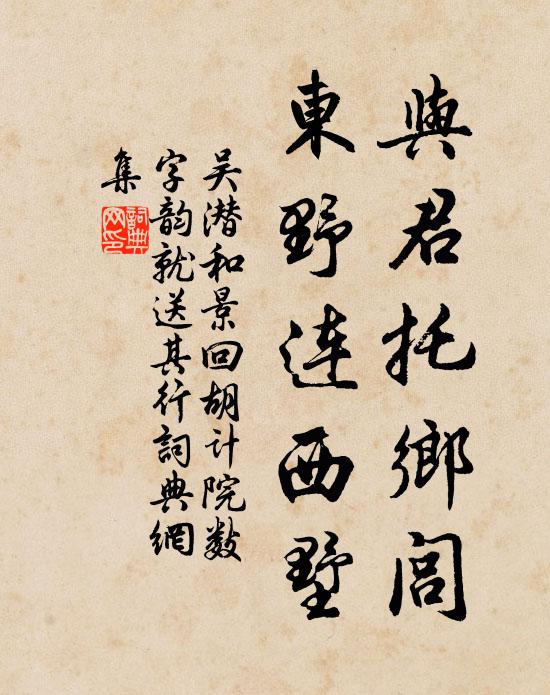 與君托鄉閭
東野連西墅
吴潜和景回胡计院数
字韵就送其行詞典網
集
詞典網印